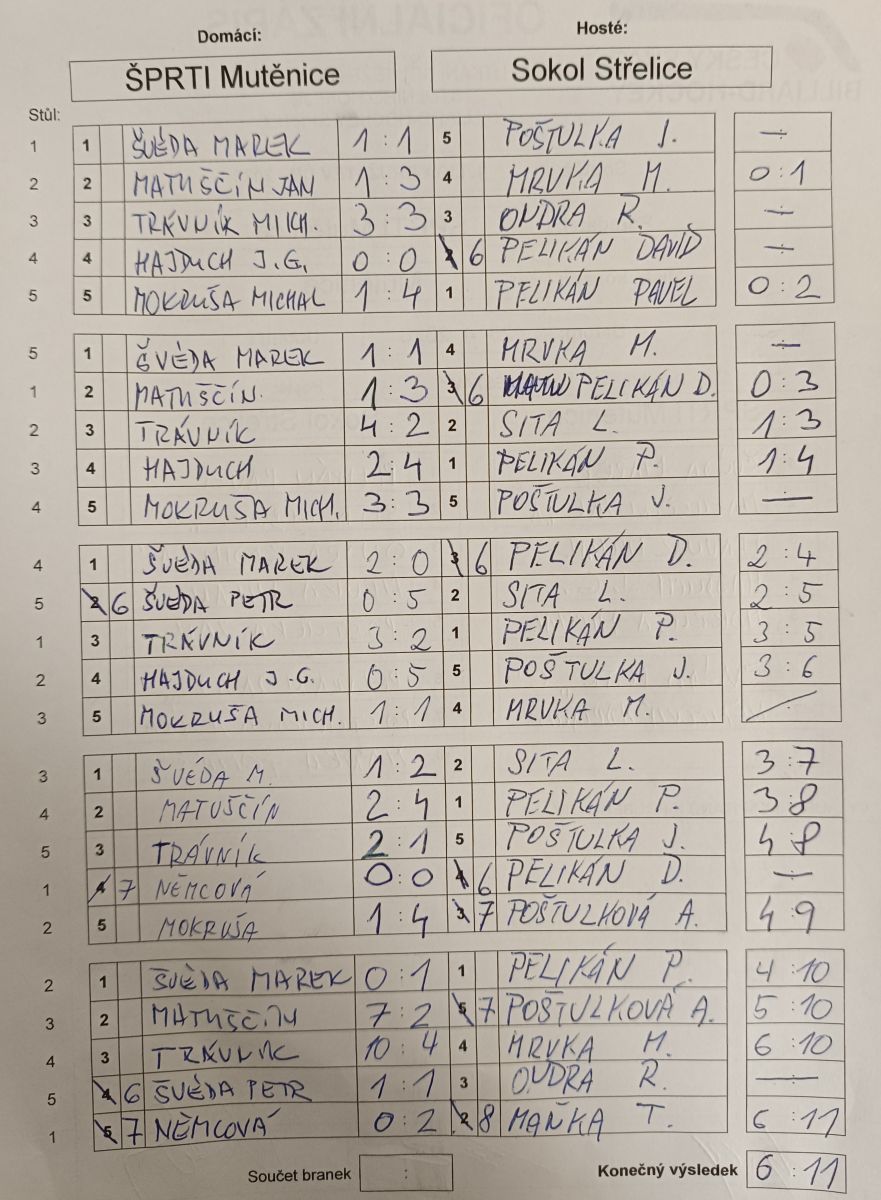 Domácí: Hosté:
ŠPRTI Mutěnice Sokol Střelice
Stůl:
1 1 ŠVÉDA MAREK 1 : 1 5 POŠTULKA J. - : -
2 2 MATUŠČÍN JAN 1 : 3 4 MRVKA M. 0 : 1
3 3 TRÁVNÍK MICH. 3 : 3 3 ONDRA R. - : -
4 4 HAJDUCH J.G. 0 : 0 6 PELIKÁN DAVID - : -
5 5 MOKRUŠA MICHAL 1 : 4 1 PELIKÁN PAVEL 0 : 2
5 1 ŠVÉDA MAREK 1 : 1 4 MRVKA M. - : -
1 2 MATUŠČÍN. 1 : 3 3 6 PELIKÁN D. 0 : 3
2 3 TRÁVNÍK 4 : 2 2 SITA L. 1 : 3
3 4 HAJDUCH 2 : 4 1 PELIKÁN P. 1 : 4
4 5 MOKRUŠA MICH. 3 : 3 5 POŠTULKA J. - : -
4 1 ŠVÉDA MAREK 2 : 0 3 6 PELIKÁN D. 2 : 4
5 2 6 ŠVÉDA PETR 0 : 5 2 SITA L. 2 : 5
1 3 TRÁVNÍK 3 : 2 1 PELIKÁN P. 3 : 5
2 4 HAJDUCH J.G. 0 : 5 5 POŠTULKA J. 3 : 6
3 5 MOKRUŠA MICH. 1 : 1 4 MRVKA M. :
3 1 ŠVÉDA M. 1 : 2 2 SITA L. 3 : 7
4 2 MATUŠČÍN 2 : 4 1 PELIKÁN P. 3 : 8
5 3 TRÁVNÍK 2 : 1 5 POŠTULKA J. 4 : 8
1 4 7 NĚMCOVÁ 0 : 0 4 6 PELIKÁN D. - : -
2 5 MOKRUŠA 1 : 4 3 7 POŠTULKOVÁ A. 4 : 9
2 1 ŠVÉDA MAREK 0 : 1 1 PELIKÁN P. 4 : 10
3 2 MATUŠČÍN 7 : 2 5 7 POŠTULKOVÁ A. 5 : 10
4 3 TRÁVNÍK 10 : 4 4 MRVKA M. 6 : 10
5 4 6 ŠVÉDA PETR 1 : 1 3 ONDRA R. - : -
1 5 7 NĚMCOVÁ 0 : 2 2 8 MAŇKA T. 6 : 11
Součet branek : Konečný výsledek 6 : 11